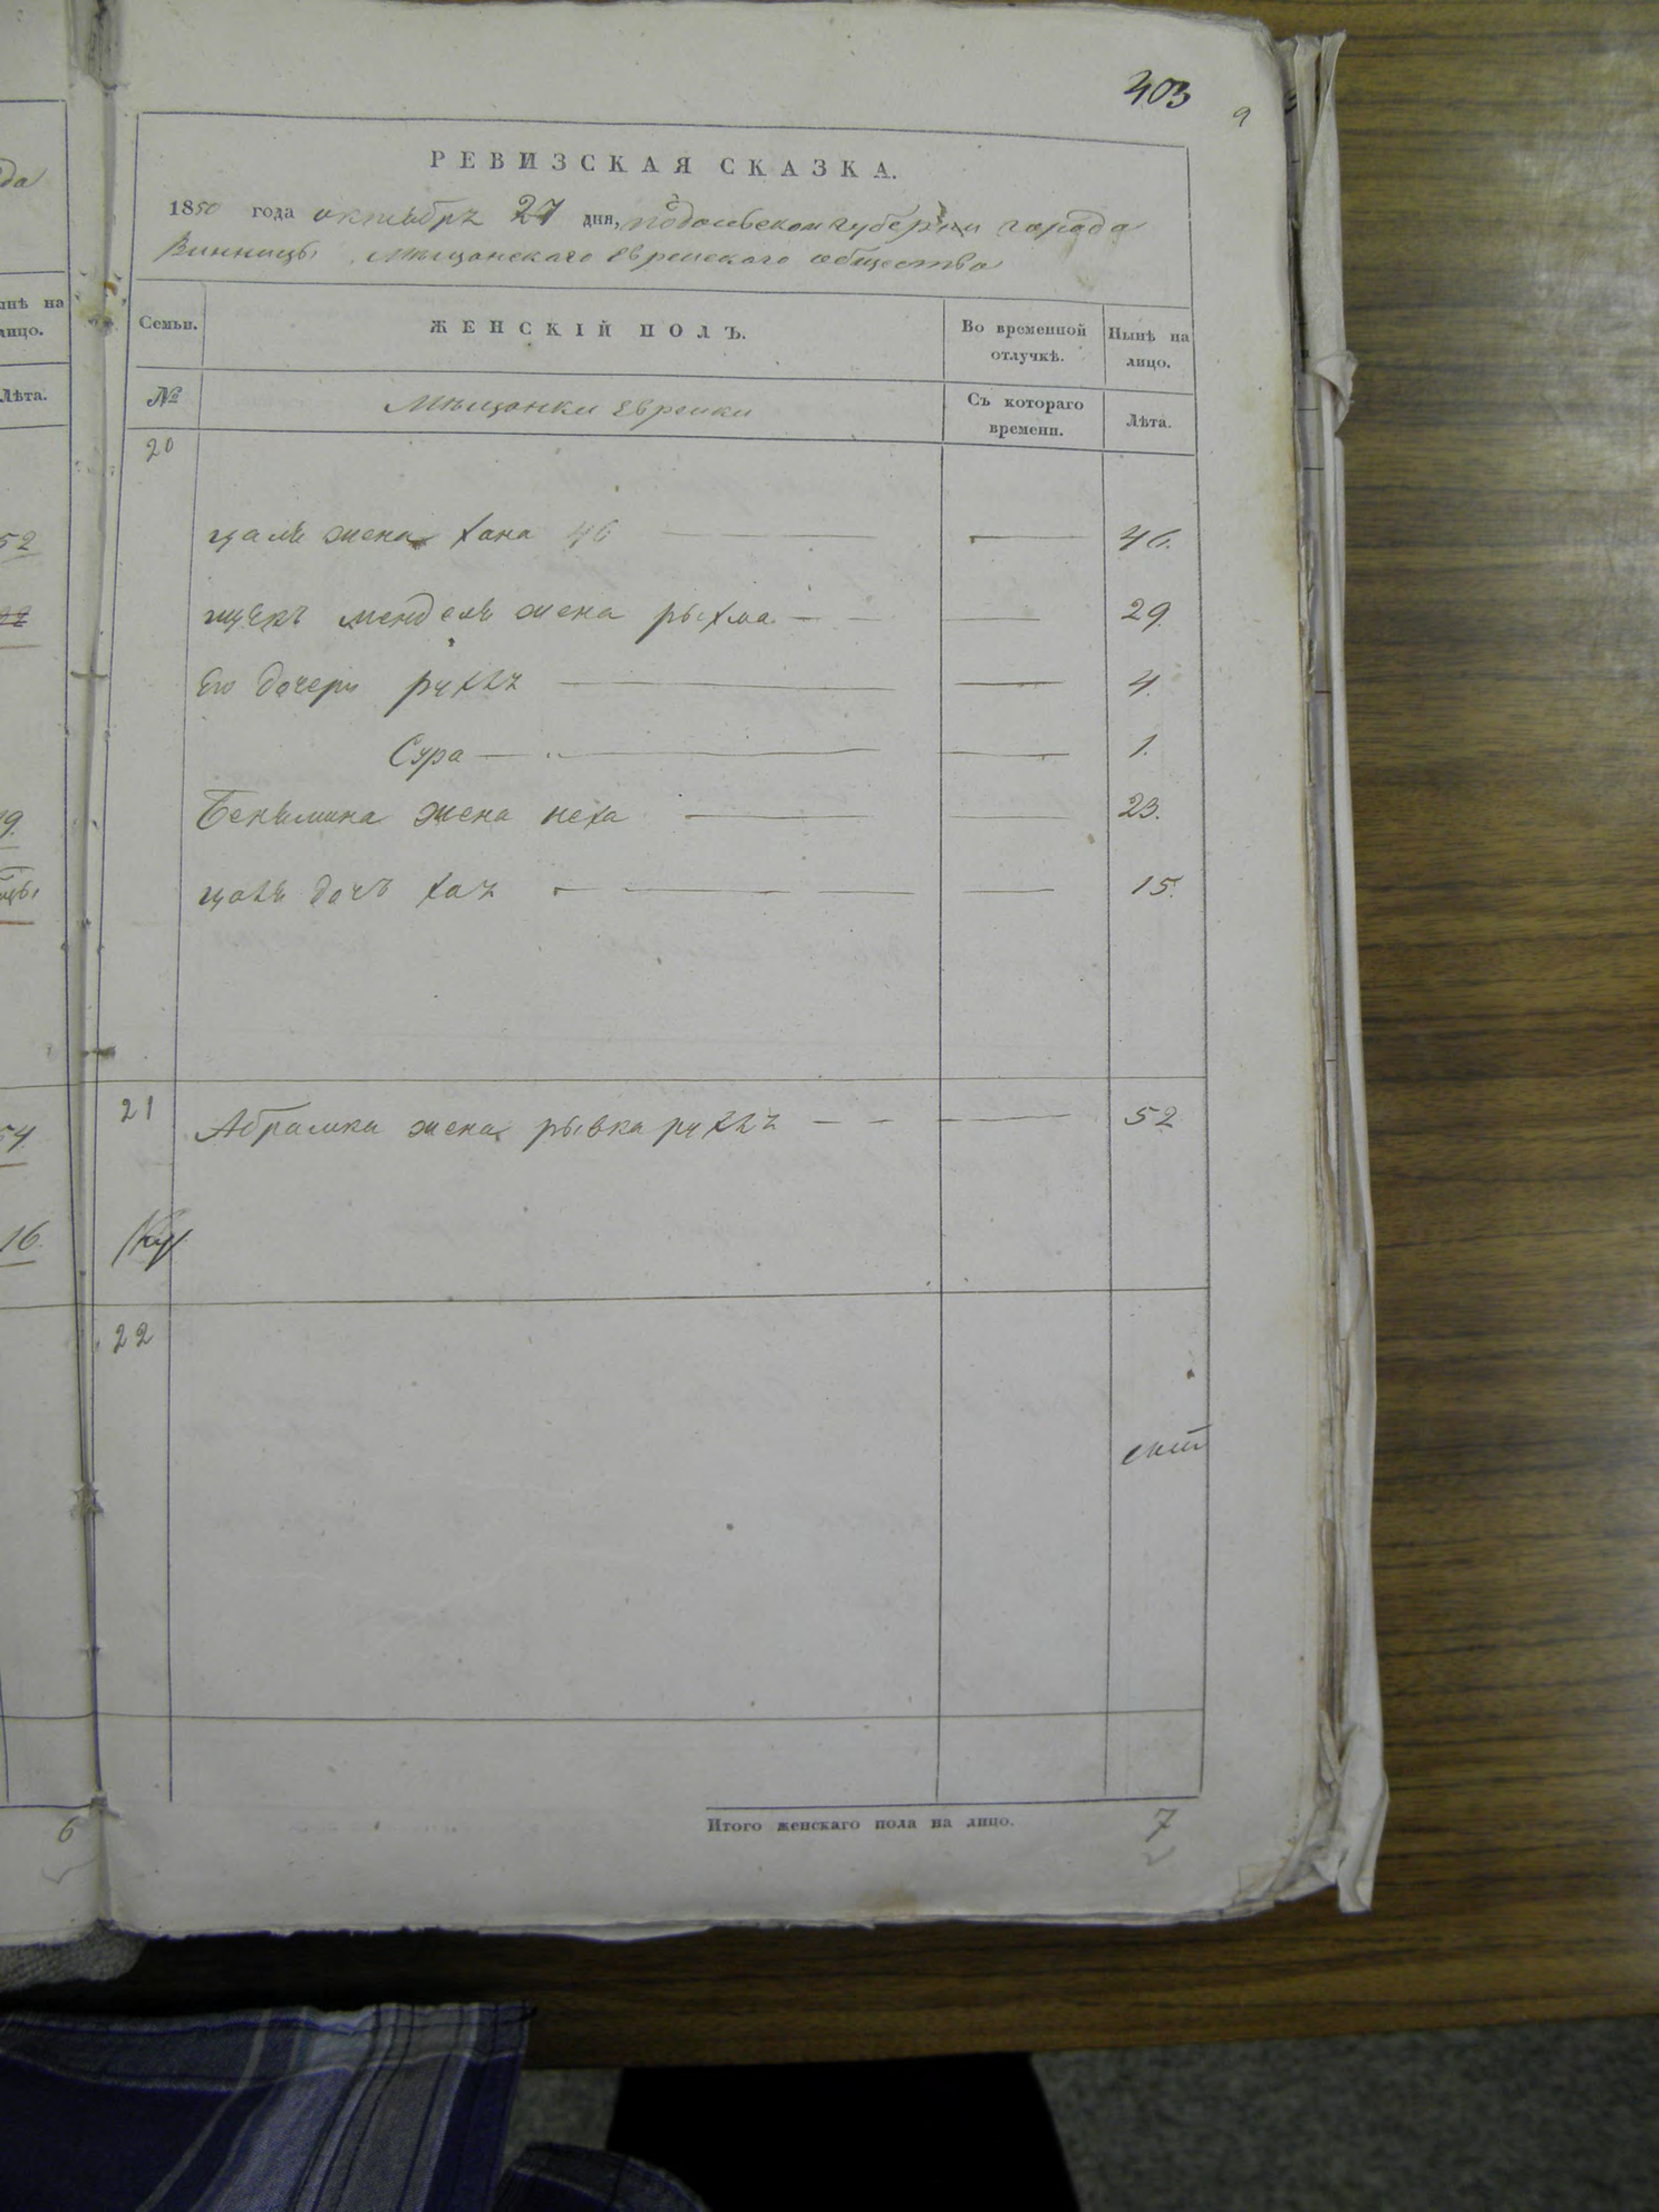 403
9
РЕВИЗСКАЯ СКАЗКА.
1850 года октября 27 дня, подольской губернии города
Винницы мѣщанскаго Еврейскаго общества
Семьи. ЖЕНСКІЙ ПОЛЪ. Во временной отлучкѣ. Нынѣ на лицо.
№ Мѣщанки Еврейки Съ котораго времени. Лѣта.
20
жена хана 46 46.
менделя жена рыхма 29.
Его дочери 4.
Сура 1.
Беньмина жена неха 23.
дочь хая 15.
21 Абрамка жена рывка 52
22
Итого женскаго пола на лицо. 7
да
нѣ на
лицо.
Лѣта.
52
9.
54
16
6